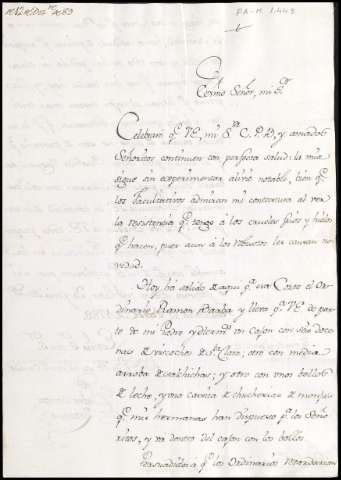 FA-M. 1.443
Señor, mi Sr.
Celebraré qe. V.E. mi Sra. C. P. D. y amados
Señoritos continuen con perfecta salud: la mia
sigue sin experimentar alivio notable, bien qe.
los Facultativos admiran mi contextura al ver
la resistencia qe. tengo á los crueles frios y hielos
qe. hacen, pues aun á los robustos les causan no-
vedad.
Hoy ha salido de aqui pa. esa Corte el Or-
dinario Ramon y lleva pa. V.E. de par-
te de mi Padre un cajon con seis doce-
nas de viscochos de Sta. Clara; otro con media
arroba de salchichas; y otro con unos bollos
de leche, y una caxita de chucherias de monjas
qe. mis hermanas han dispuesto pa. los Seño-
ritos, y va dentro del cajon con los bollos.
Persuadidos á qe. los Ordinarios